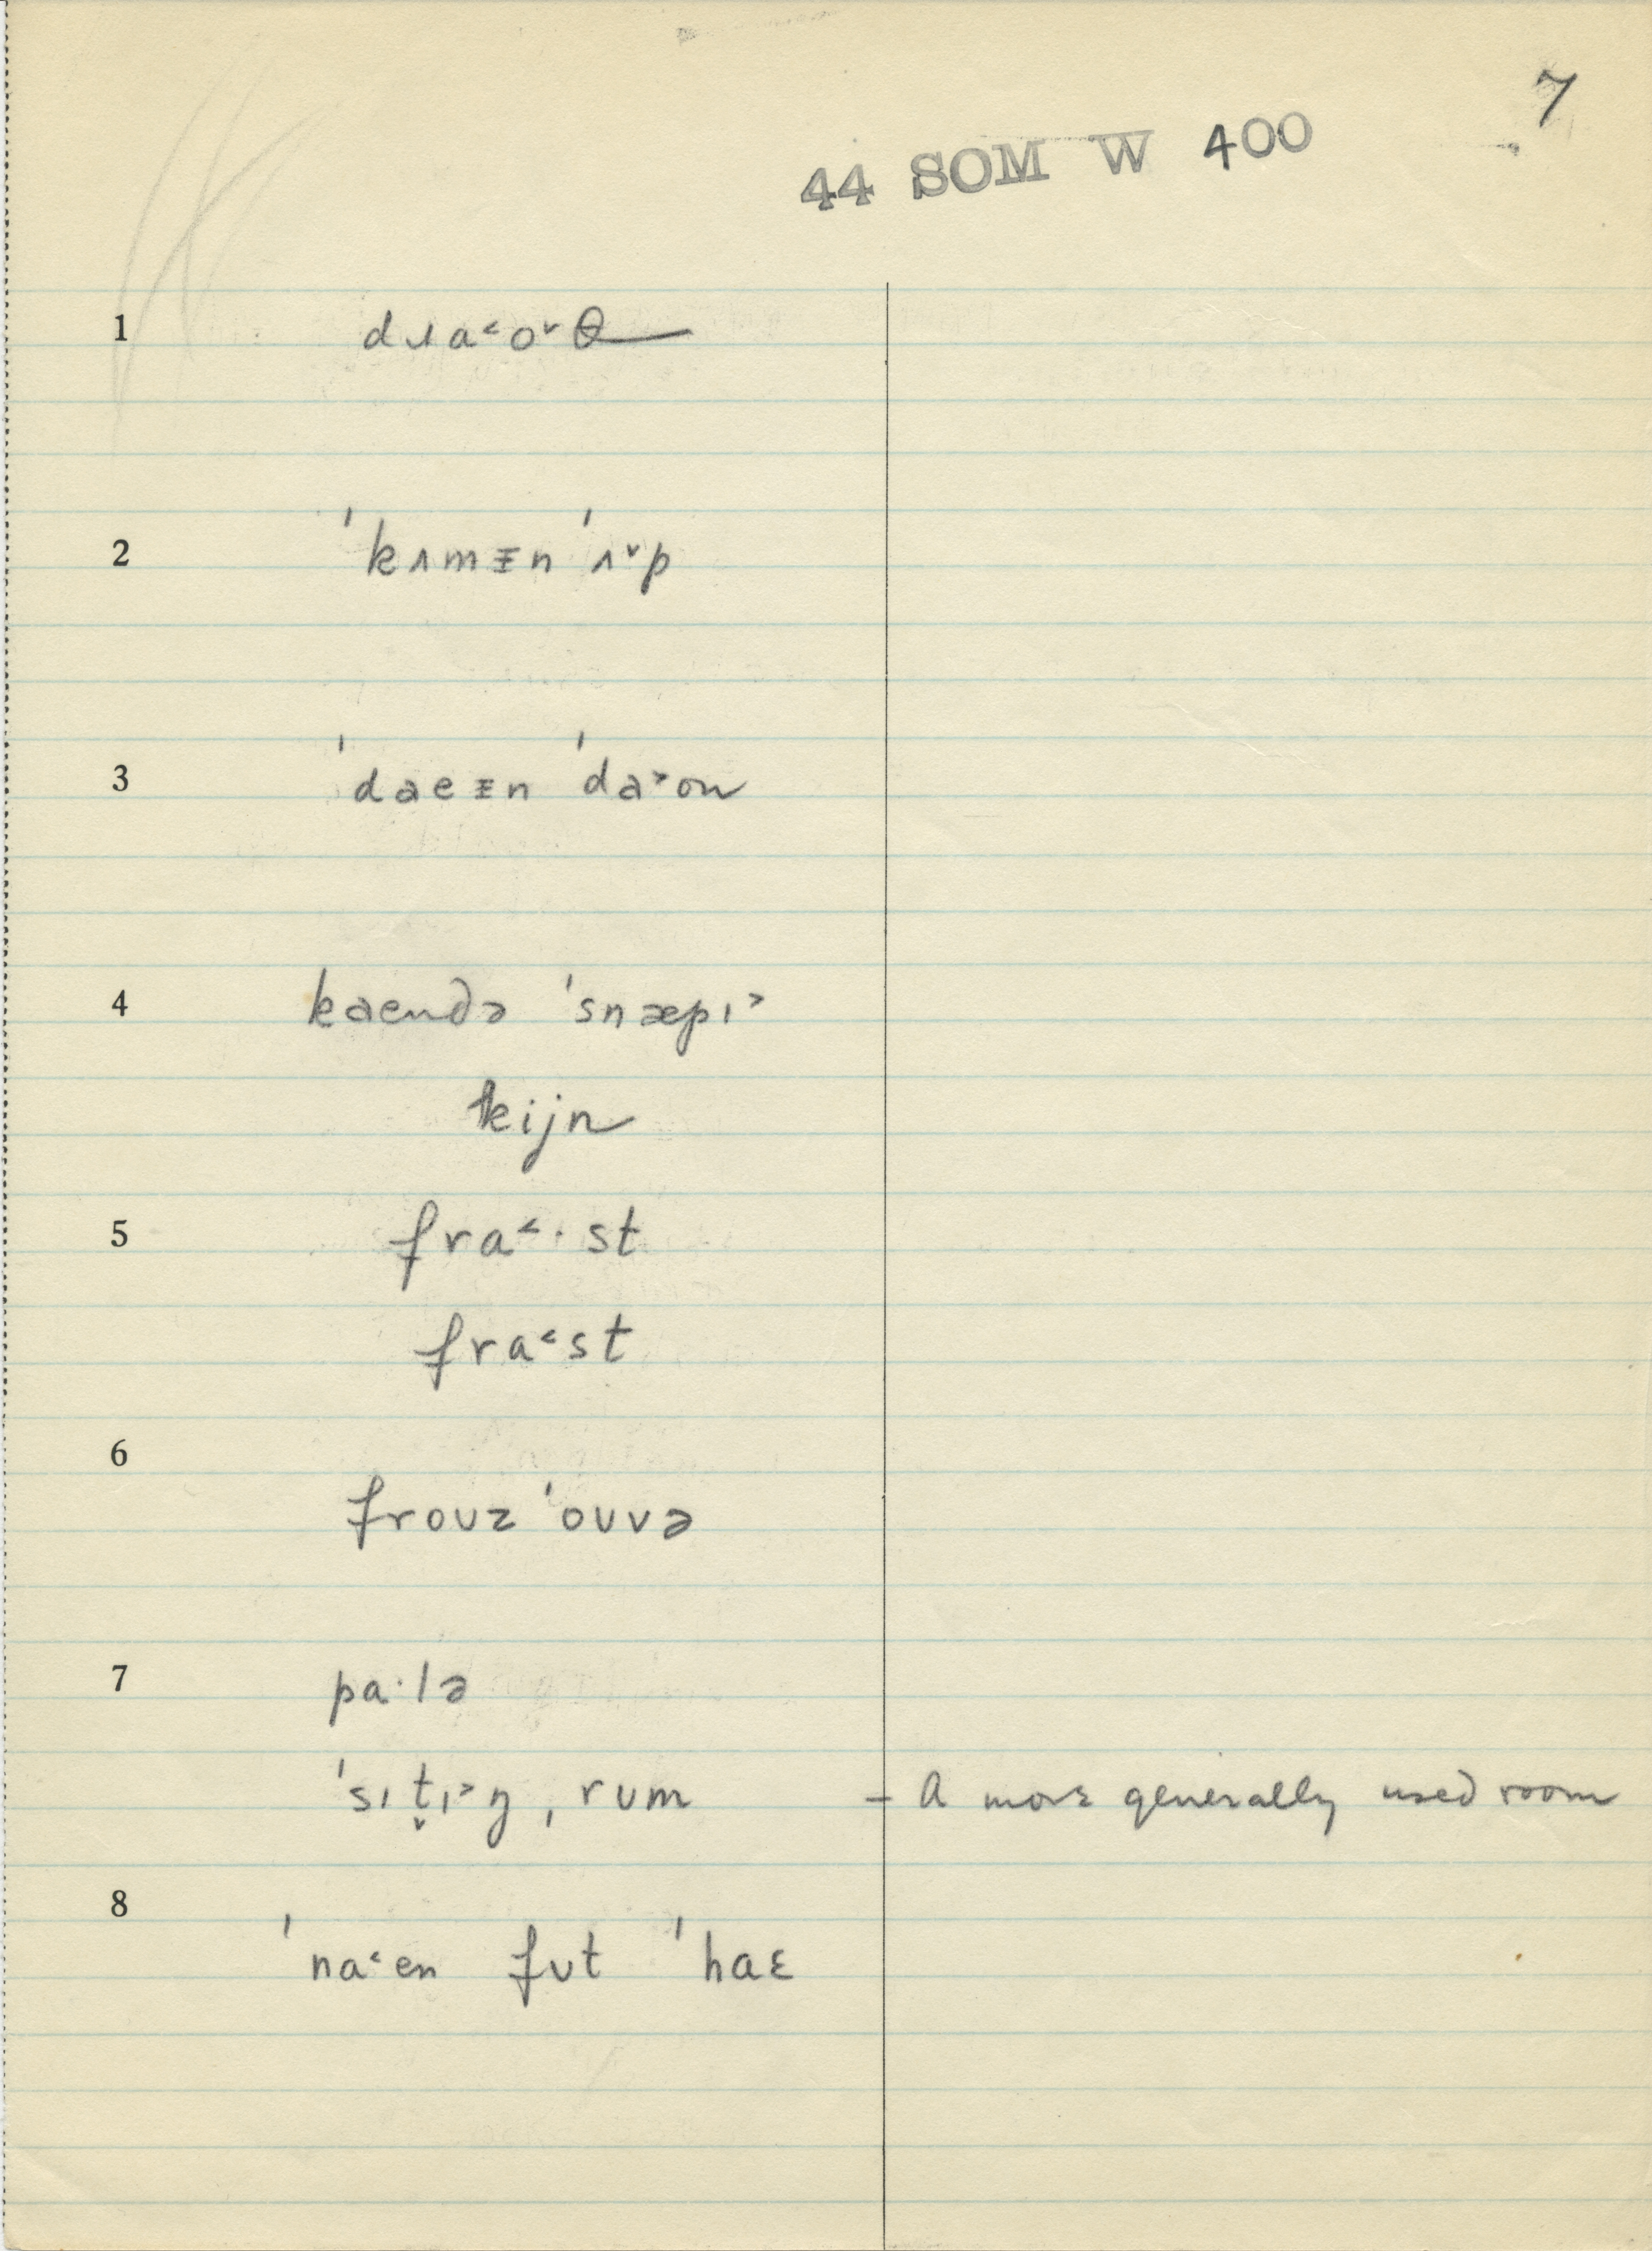 7
44 SOM W 400
1 dɹa˂o˅θ
2 ˈkʌmᵻn ˈʌ˅p
3 ˈdaeᵻn ˈda˃ʊn
4 kaendə ˈsnæpɪ˃
kijn
5 fra˂·st
fra˂st
6 froʊz ˈoʊvə
7 pa·lə
ˈsɪt̬ɪ˃ŋ ˌrʊm – A more generally used room
8 ˈna˂en fʊt ˈhaɛ